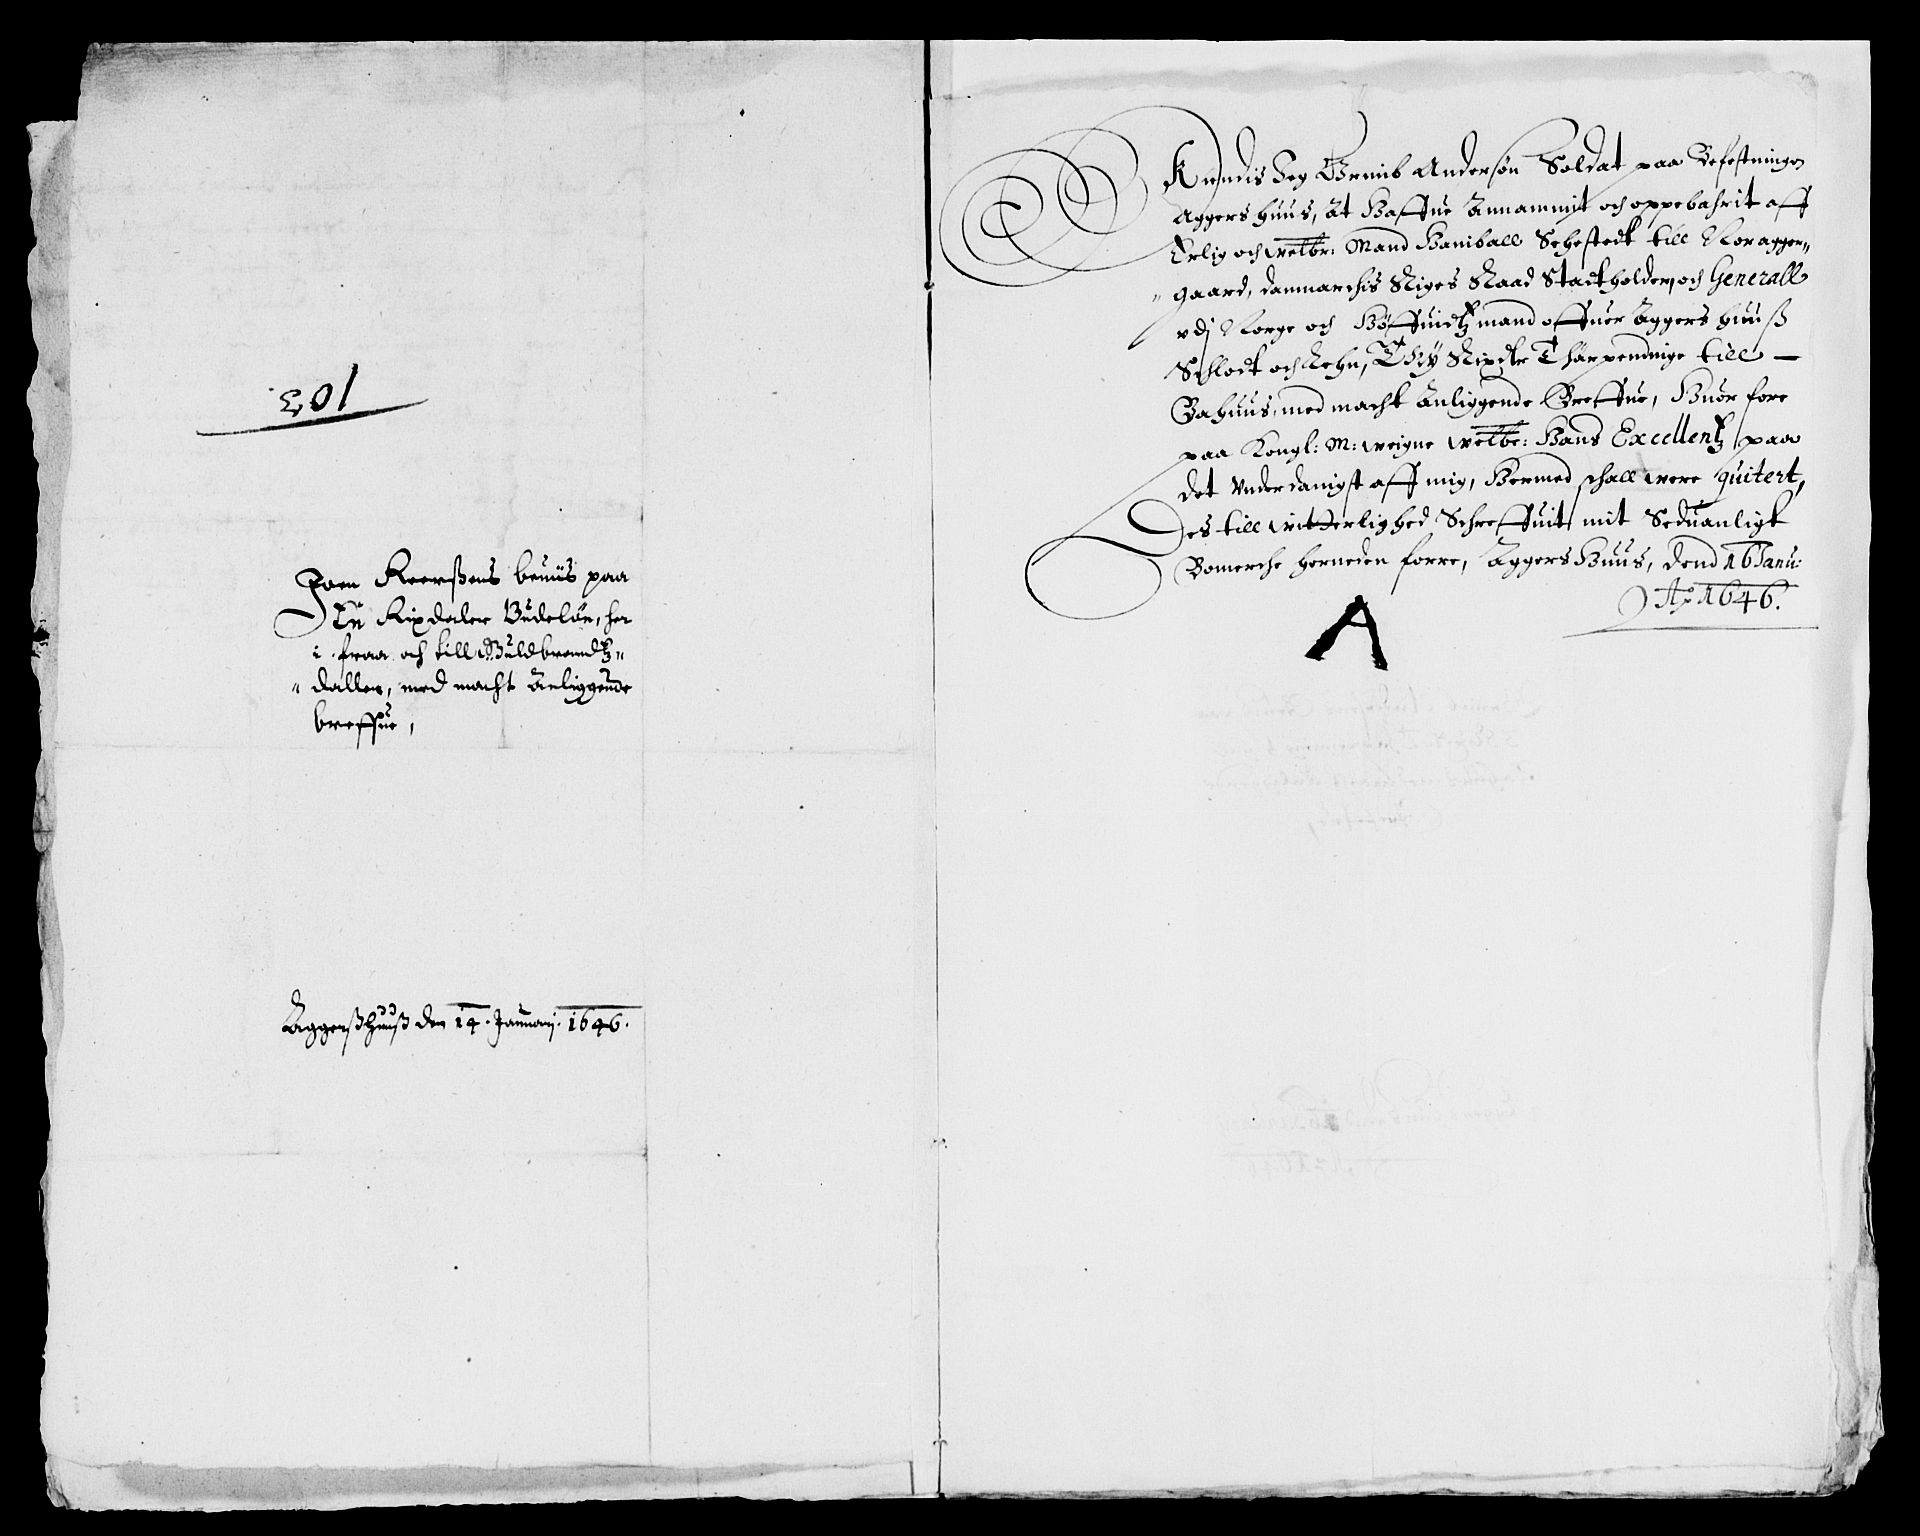 103.
Joen Keerßens beuiis paa
Tü Rixdaler Budelön, her
i fraa och till Guldbrandtz-
dallen, med macht Anliggende
breffue,
Aggerßhuuß den 14. Januarij. 1646.
Kiendis Jeg Brinib Andersøn Soldat paa Befestningen
Aggershuus, At Haffue Annammit och oppebahrit aff
Erlig och welbr: Mand Haniball Sehestedt till Noragger-
gaard, danmarchis Riges Raad Stadtholder, och Generall
vdj Norge och Höffuidtzmand offuer Aggershuuß
Schlodt och Lehn, Thij Rixdlr Thærpendnige till
Bahuus, med macht Anliggende Breffue, Huor fore
paa Kongl: M: weigne welbr: Hans Excellentz paa
det Underdanigst aff mig, Hermed schall were quitert,
Des till witterlighed Schreffuit mit Seduanligt
Bomerche herneden forre, AggersHuus, Dend 16 Janu:
Ao 1646.
A